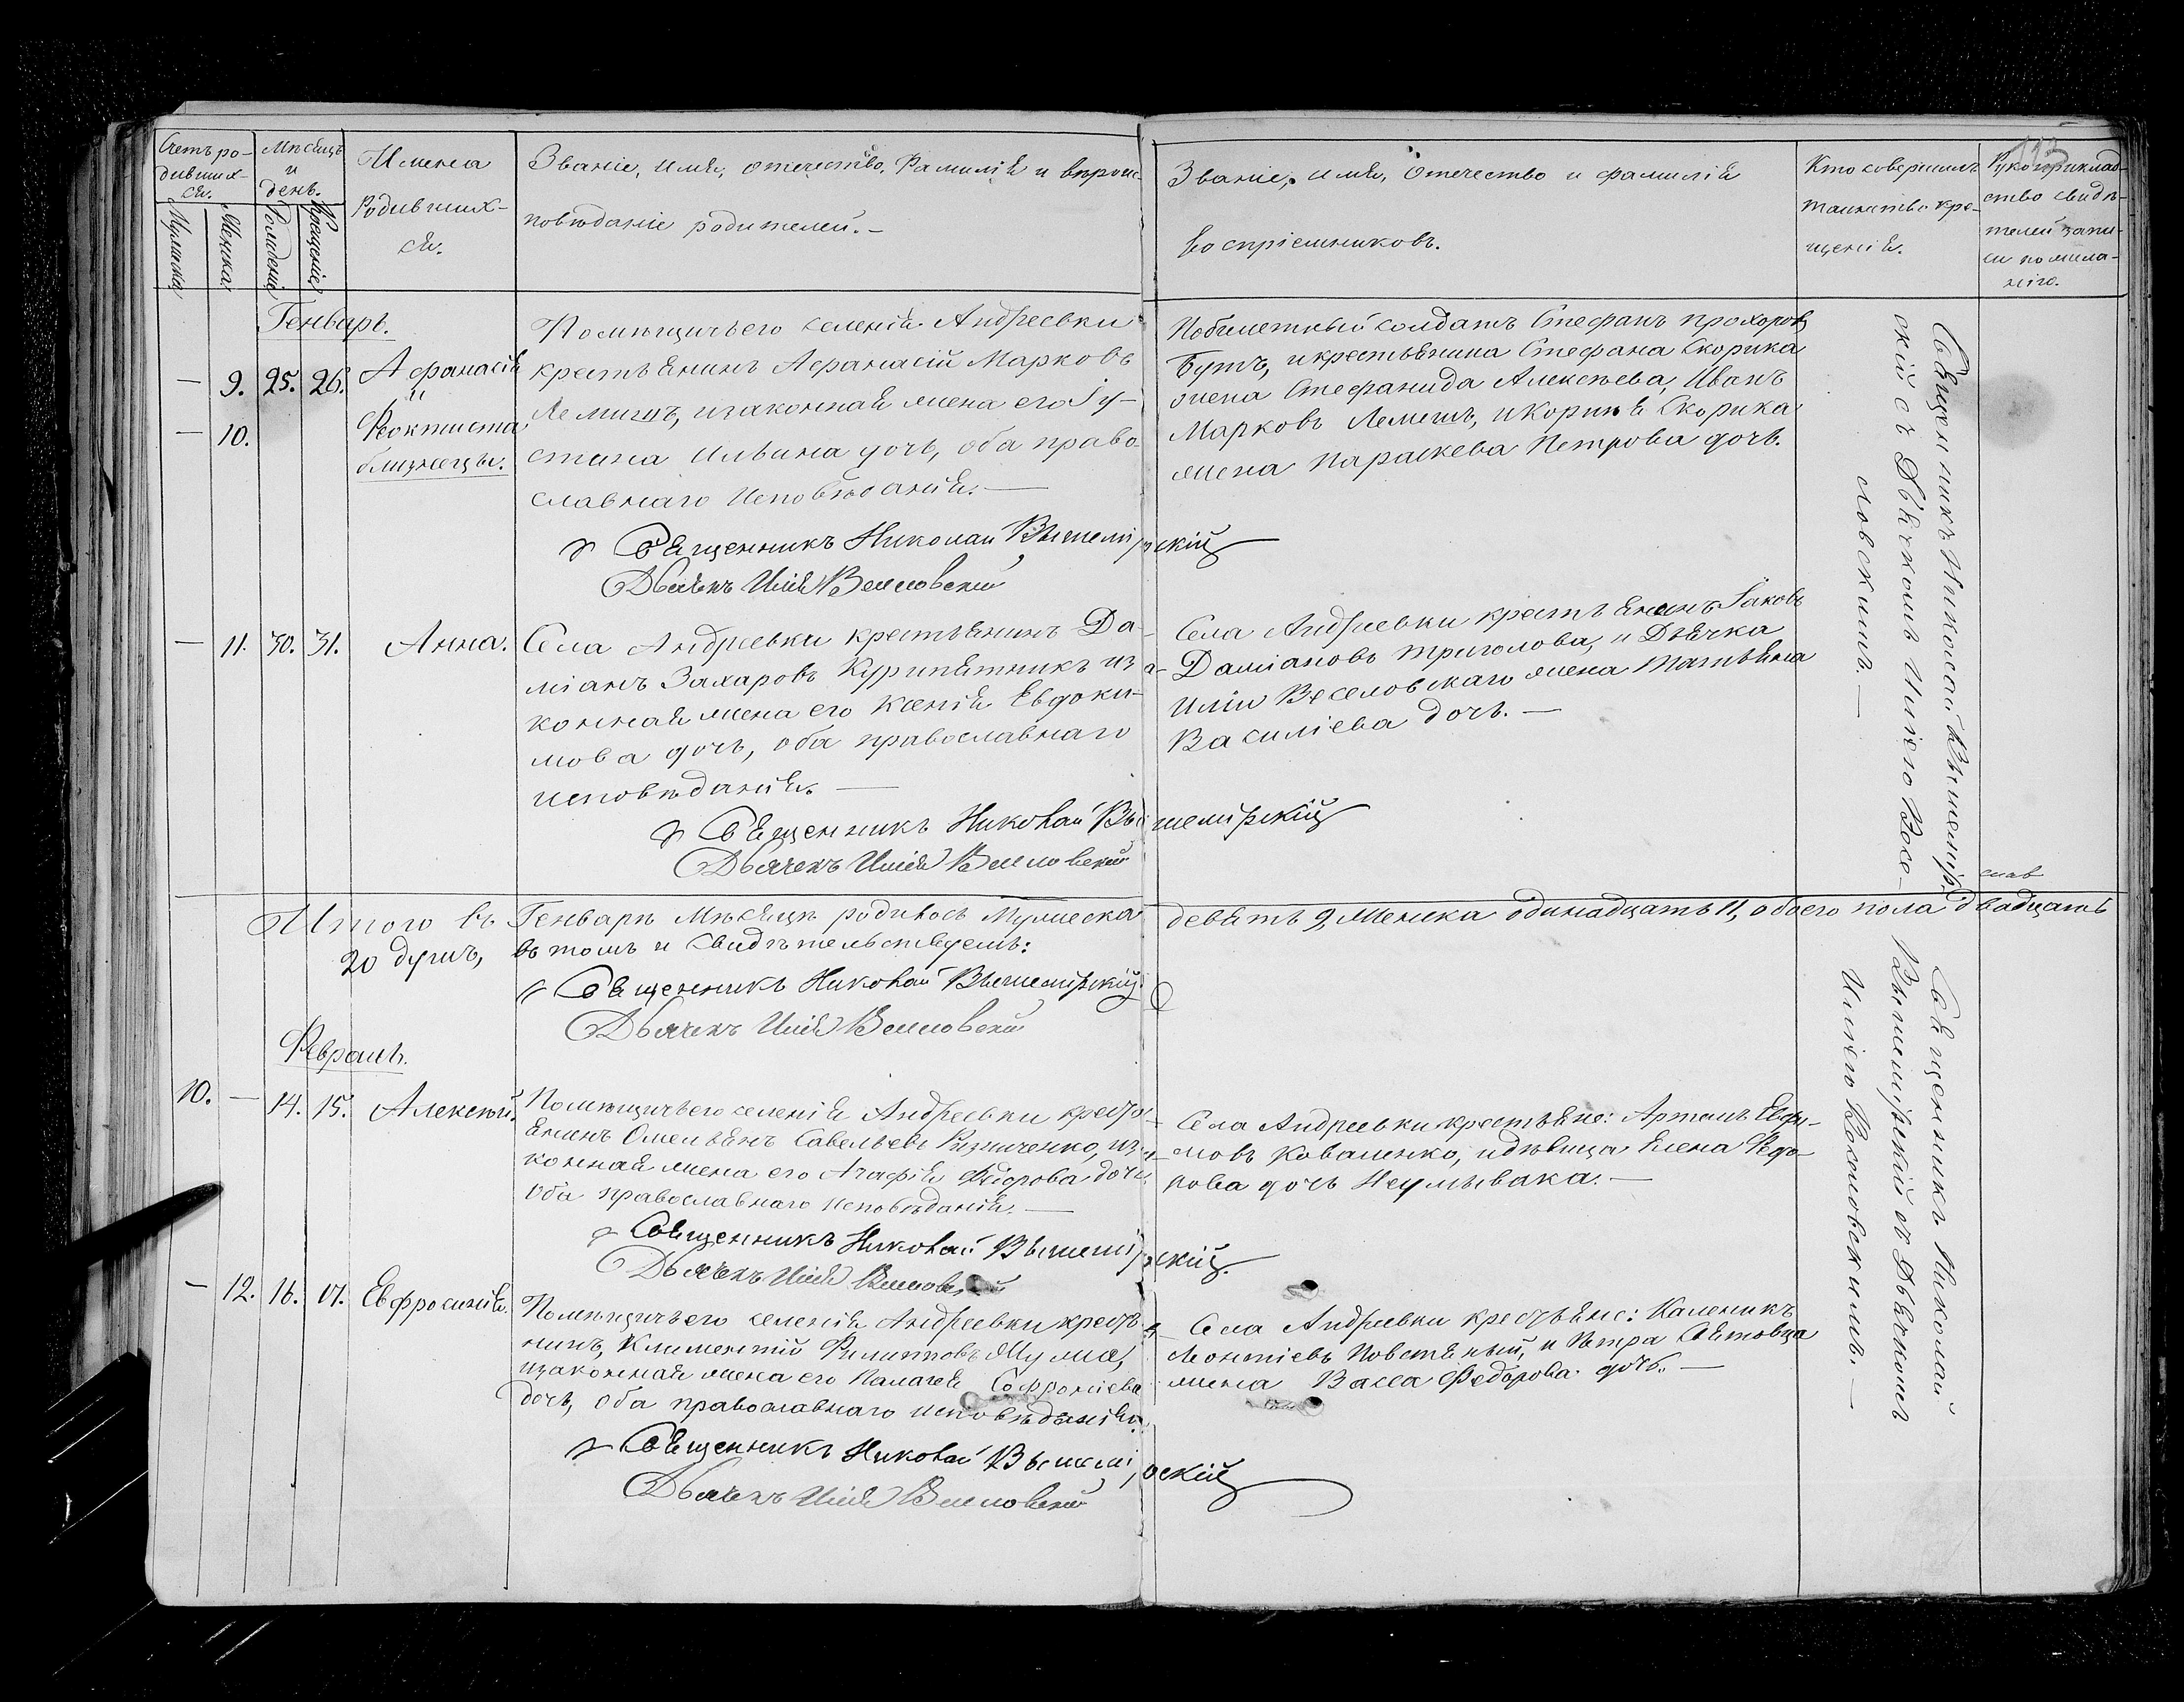 Счетъ ро-
дивших-
ся.
Мѣсяцъ
и
день.
Имена
Родивших-
ся.
Званіе, имя, отечество, Фамилія и вѣроис-
повѣданіе родителей.-
Званіе, имя, отечество и фамилія
воспріемниковъ.
Кто совершилъ
таинство кре-
щенія.
Рукоприклад-
ство свидѣ-
телей запи-
си по жела-
нію.
113
Мужеска
Женска
Рожденія
Крещенія
Генварь.
— 9. 25. 26. Афанасія
и
— 10. Феоктиста
близнецы.
Помѣщичьего селенія Андреевки
крестьянинъ Афанасій Марковъ
Лемишъ, изаконная жена его Іу-
стина Ильина дочь, оба право-
славнаго Исповѣданія.—
Священникъ Николай Вышемірскій
Дьячекъ Илія Веселовскій
Побилетный солдатъ Стефанъ прохоровъ
Бутъ, икрестьянина Стефана Скорика
жена Стефанида Алексѣева, Иванъ
Марковъ Лемешъ, иКорнія Скорика
жена Параскева Петрова дочь.
Священникъ Николай Вышемір-
скій съ Дьячкомъ Иліею Весе-
ловскимъ.—
— 11. 30. 31. Анна.
Села Андреевки крестьянинъ Да-
міанъ Захаровъ Курипятникъ иза-
конная жена его Ксенія Евдоки-
мова дочь, оба православнаго
исповѣданія.—
Священникъ Николай Вышемірскій
Дьячекъ Илія Веселовскій
Села Андреевки крестьянинъ Іаковъ
Даміановъ Триголова, и Дьячка
Иліи Веселовскаго жена Татьяна
Василіева дочь.—
Итого въ Генварѣ Мѣсяцѣ родилось Мужеска девять 9, Женска одинадцать 11, обоего пола двадцать
20 душъ, въ томъ и свидѣтельствуемъ:
Священникъ Николай Вышемірскій
Дьячекъ Илія Веселовскій
Февраль.
10. — 14. 15. Алексѣй.
Помѣщичьего селенія Андреевки кресть-
янинъ Омельянъ Савельевъ Ризниченко, иза-
конная жена его Агафія Федорова дочь
Оба православнаго исповѣданія.—
Священникъ Николай Вышемірскій.
Дьячекъ Илія Веселовскій
Села Андреевки крестьяне: Артемъ Евфи-
мовъ Коваленко, идѣвица Елена Федо-
рова дочь Неумывака.—
Священникъ Николай
Вышемірскій съ Дьячкомъ
Иліею Веселовскимъ.—
— 12. 16. 17. Евфросинія.
Помѣщичьего селенія Андреевки крестья-
нинъ, Климентій Филипповъ
изаконная жена его Палагея Софроніева
дочь, Оба православнаго исповѣданія.
Священникъ Николай Вышемірскій
Дьячекъ Илія Веселовскій
Села Андреевки крестьяне: Каленикъ
Леонтіевъ Повстяный, и Петра
жена Васса Федорова дочь.—